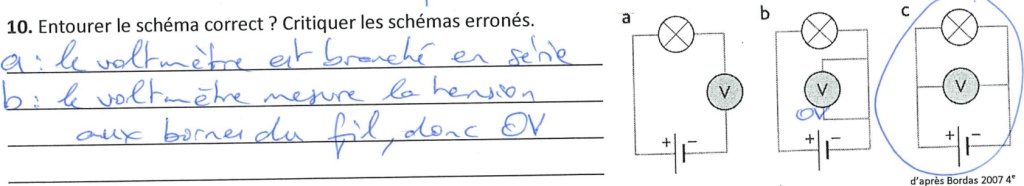 10. Entourer le schéma correct ? Critiquer les schémas erronés.
a : le voltmètre est branché en série
b : le voltmètre mesure la tension
aux bornes du fil, donc 0V
a
V
+ -
b
V
0V
+ -
c
V
+ -
d'après Bordas 2007 4e